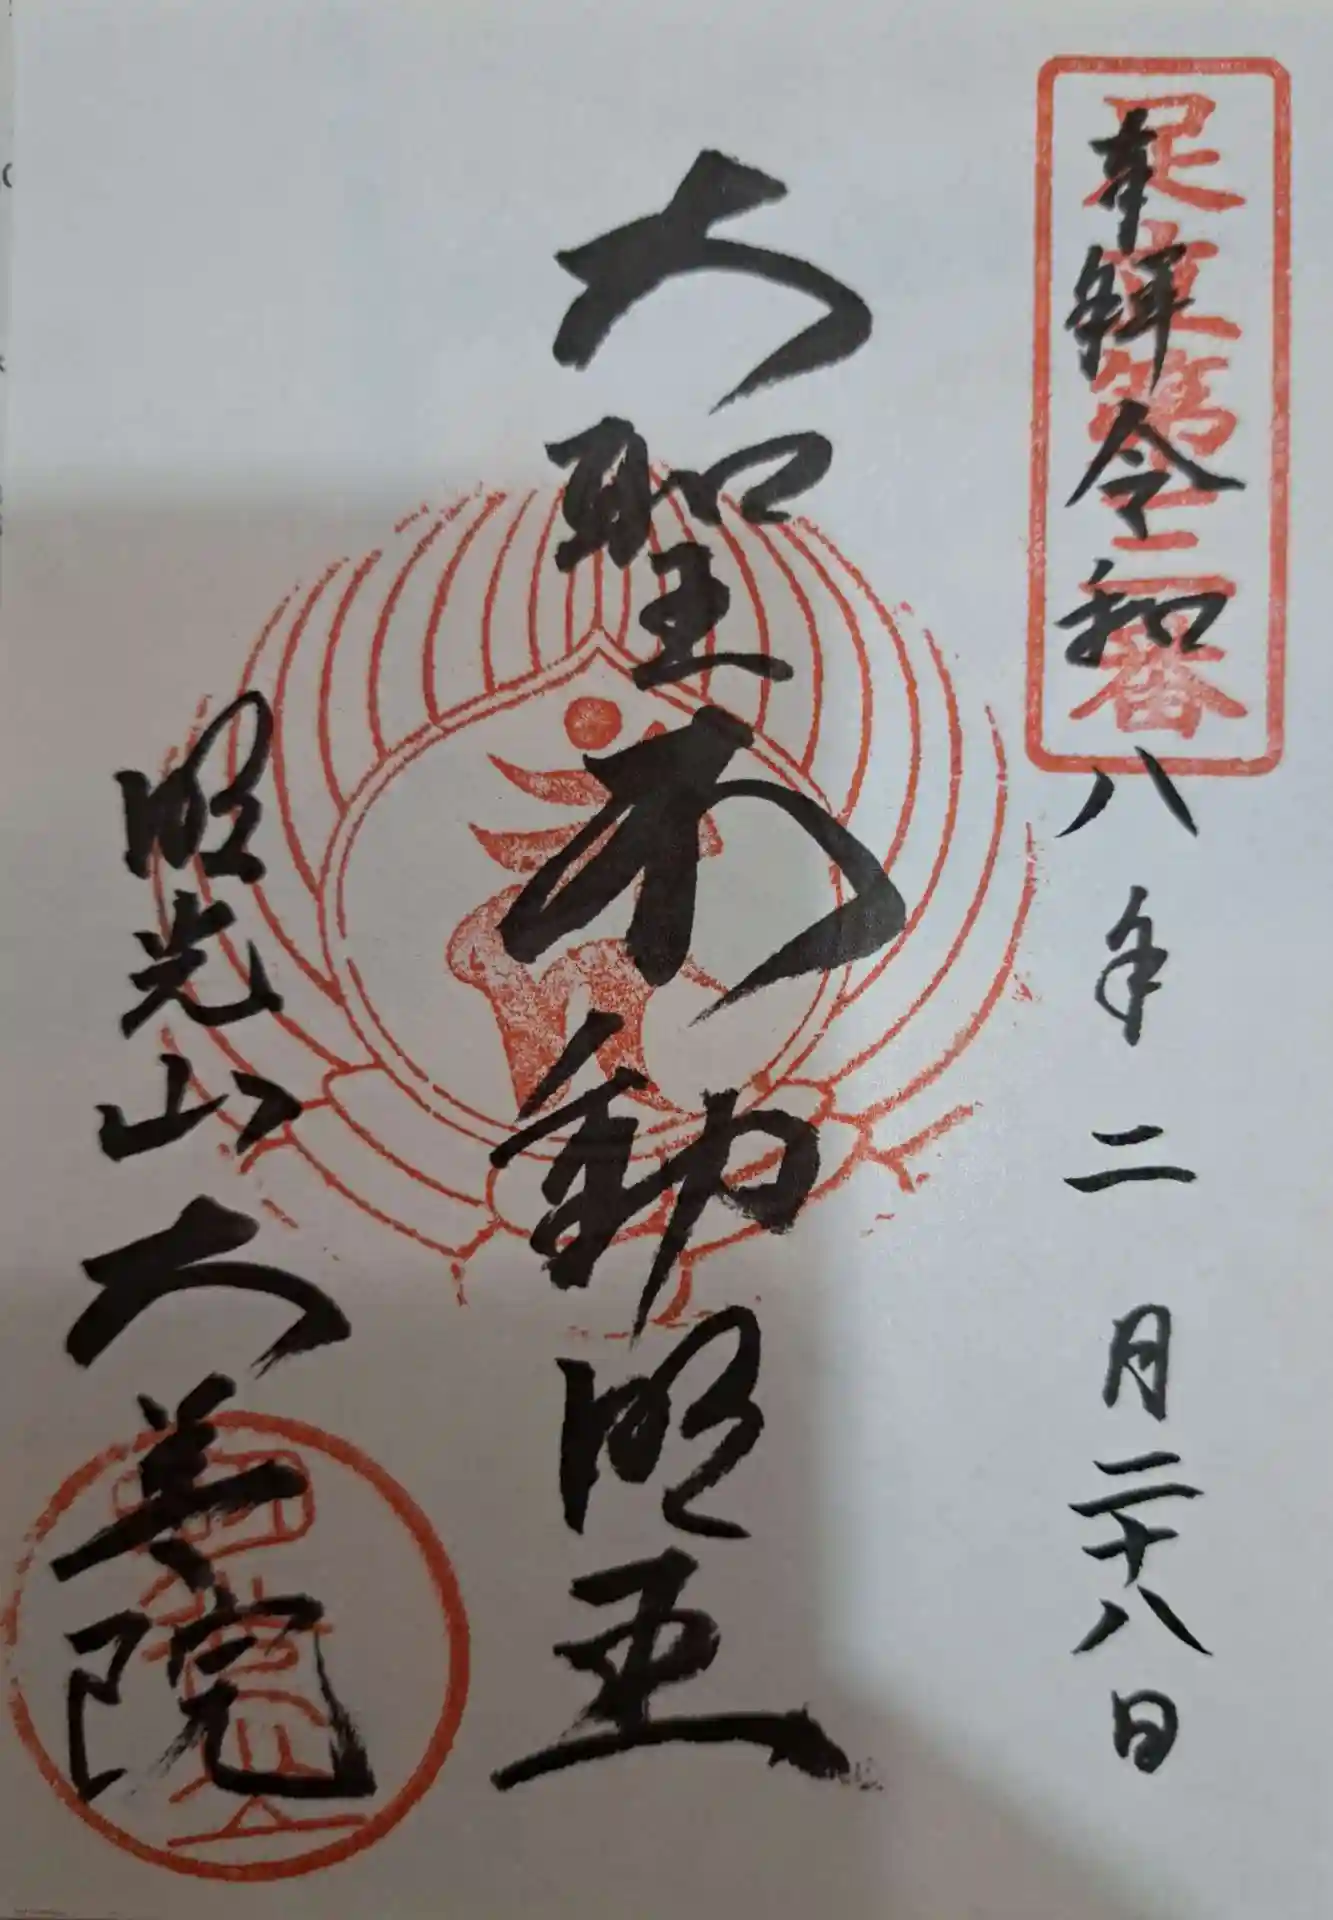 奉拝 令和八年二月二十八日
大聖不動明王
明光山 大美院